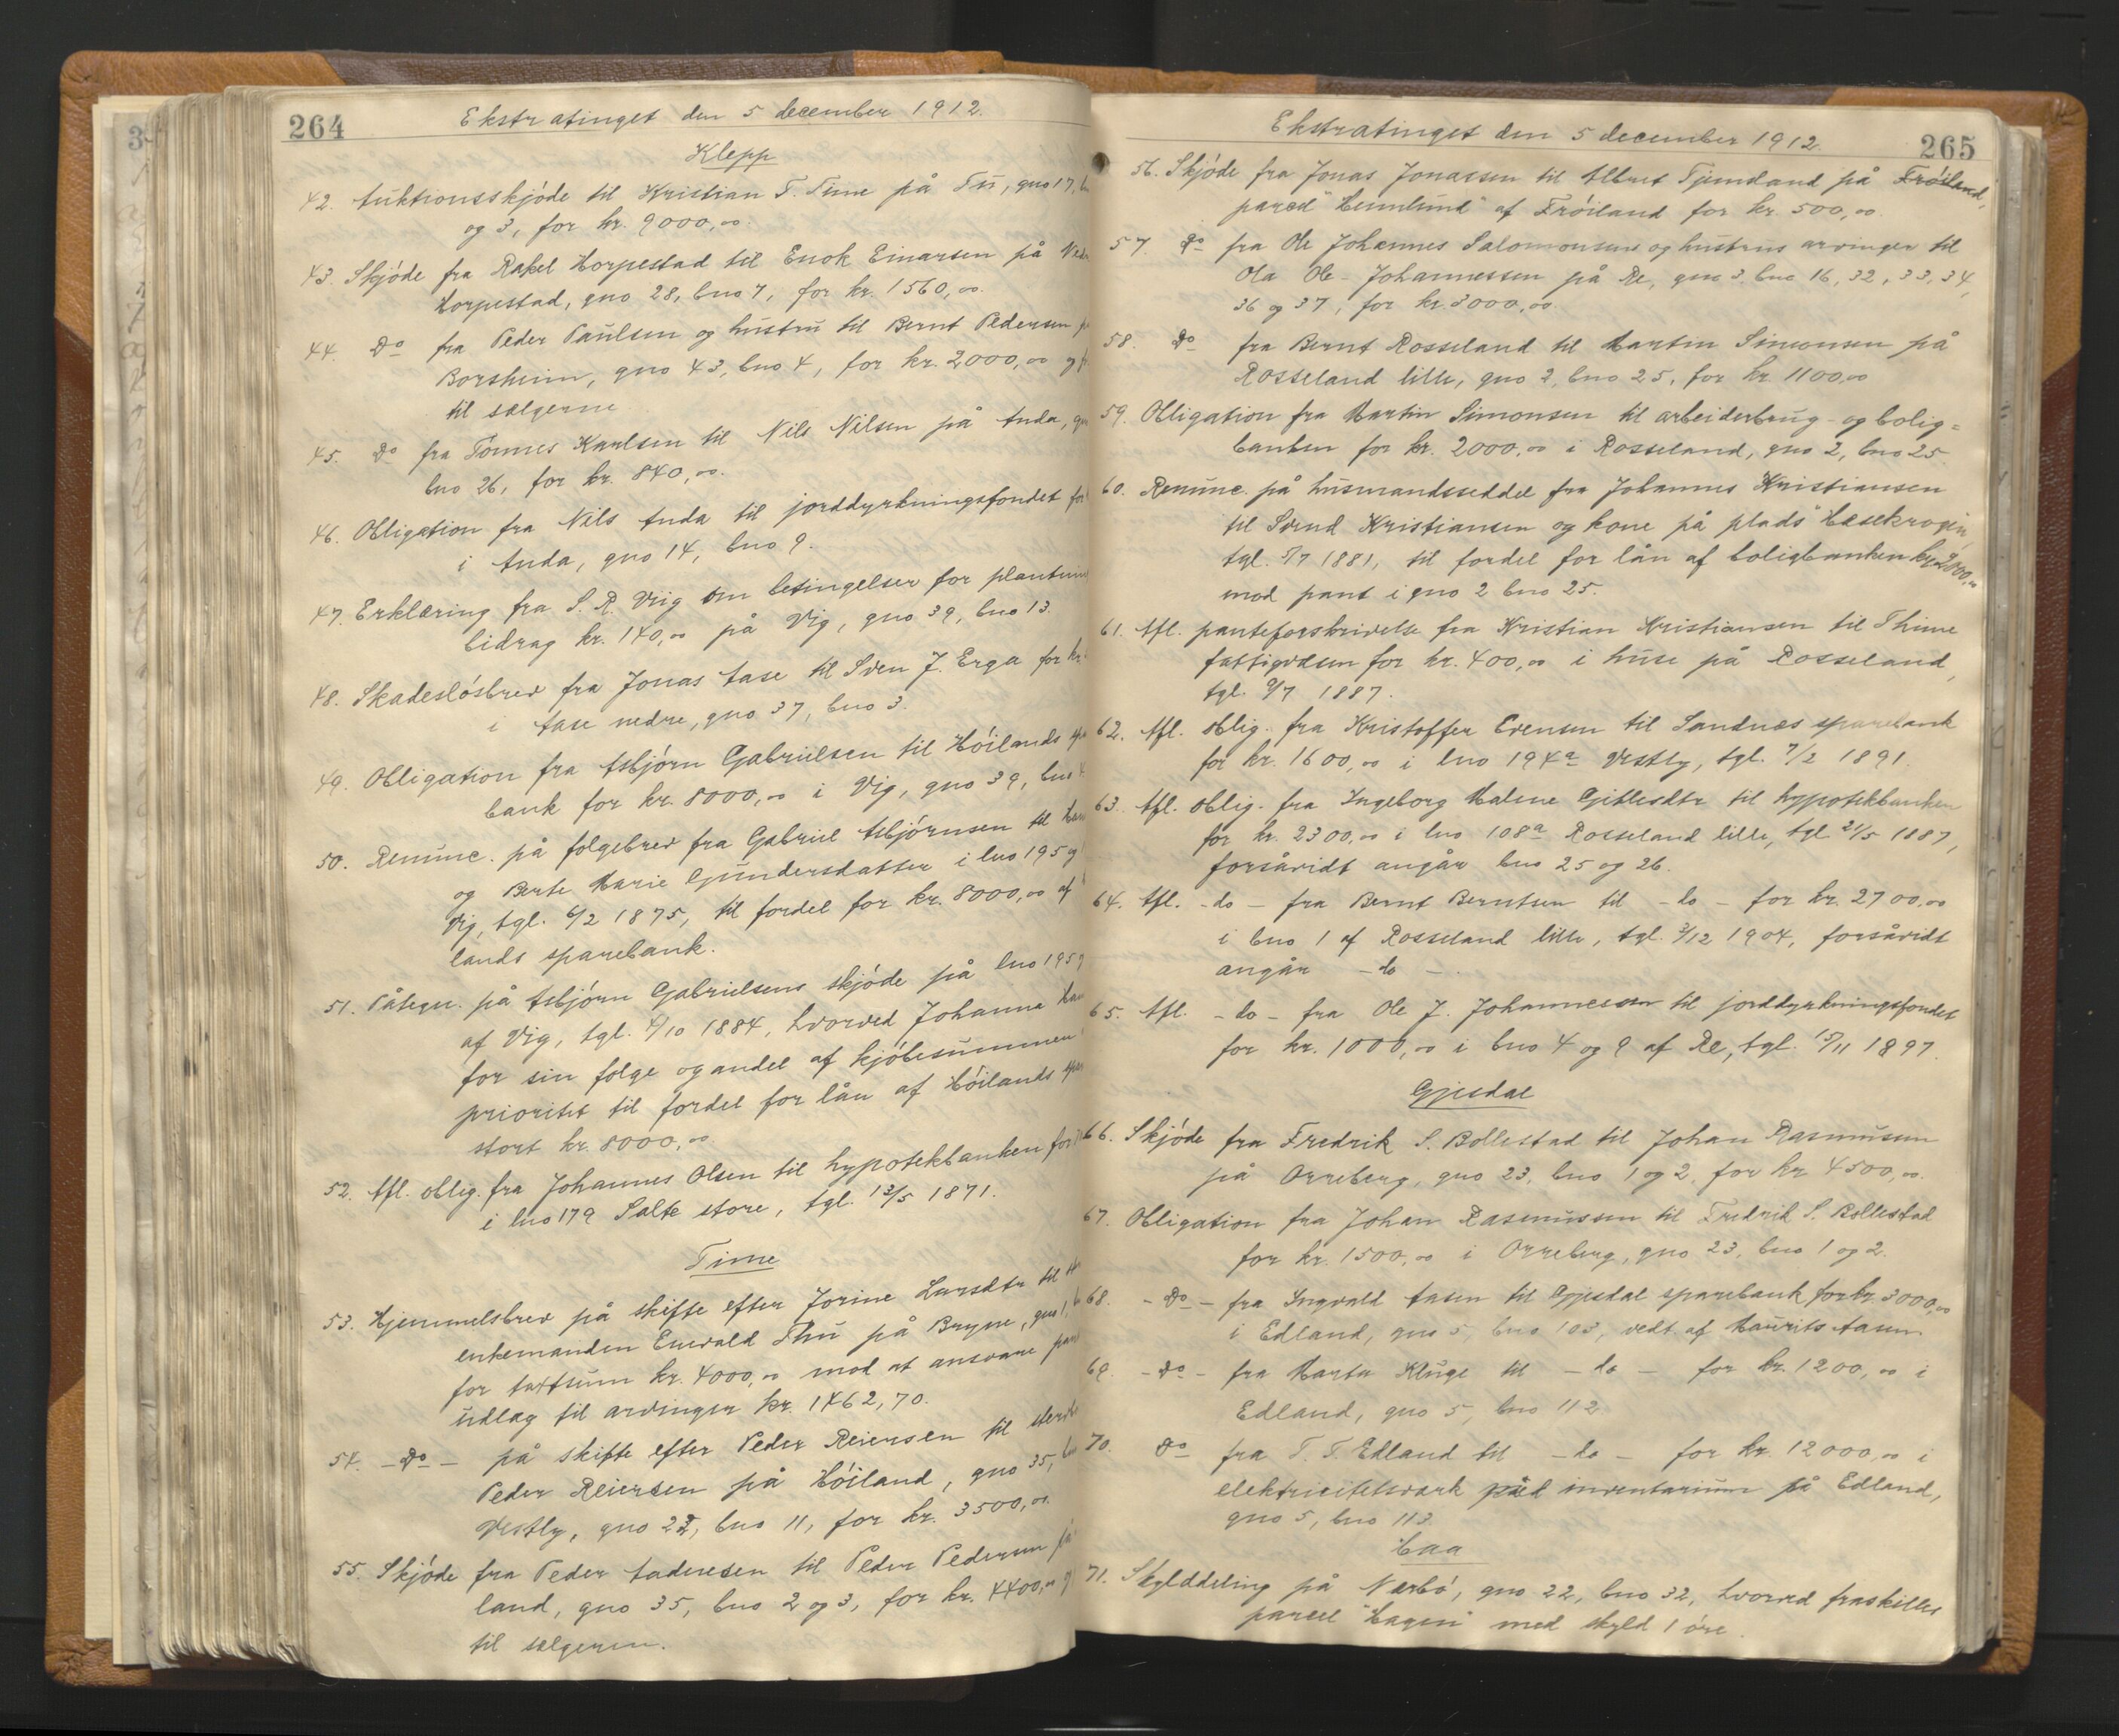 264
Ekstratinget den 5 december 1912.
Klepp
42. Auktionsskjöde til Kristian T. Time på Tu, gno 17,
og 3, for kr. 9000,00.
43. Skjöde fra Rakel Horpestad til Enok Einarsen på
Horpestad, gno 28, bno 7, for kr. 1560,00.
44. Do fra Peder Paulsen og hustru til Bernt Pedersen
Borsheim, gno 43, bno 4, for kr. 2000,00
til sælgerne.
45. Do fra Tönnes Karlsen til Nils Nilsen på Anda,
bno 26, for kr. 840,00.
46. Obligation fra Nils Anda til jorddyrkningsfondet for
i Anda, gno 14, bno 9.
47. Erklæring fra S. R. Viig om betingelser for
bidrag kr. 140,00 på Vig, gno 39, bno 13.
48. Skadeslösbrev fra Jonas Aase til Sven J. Erga for kr.
i Aase nedre, gno 37, bno 3.
49. Obligation fra Asbjörn Gabrielsen til Höilands
bank for kr. 8000,00 i Vig, gno 39, bno
50. Renunc. på folgebrev fra Gabriel Asbjörnsen til
og Berte Marie Gundersdatter i lno 195
Vig, tgl. 6/2 1875, til fordel for kr. 8000,00 af
lands sparebank.
51. Påtegn. på Asbjörn Gabrielsens skjöde på lno 195
af Vig, tgl. 4/10 1884, hvorved Johanne
for sin folge og andel af kjöbesummen
prioritet til fordel for lån af Höilands
stort kr. 8000,00.
52. Afl. oblig. fra Johannes Olsen til hypotekbanken for
i lno 179 Salte store, tgl. 13/5 1871.
Time
53. Hjemmelsbrev på skifte efter Jorine Larsdtr til
enkemanden Enevald Thu på Bryne, gno 1,
for taxtsum kr. 4000,00 mod at ansvare
udlæg til arvinger kr. 1462,70.
54. - Do - på skifte efter Peder Reiersen til
Peder Reiersen på Höiland, gno 35,
Vestly, gno 22, bno 11, for kr. 3500,00.
55. Skjöde fra Peder Andersen til Peder Pedersen
land, gno 35, bno 2 og 3, for kr. 4400,00
til sælgeren.
265
Ekstratinget den 5 december 1912
56. Skjöde fra Jonas Jonassen til Albret Tjemsland på Fröiland,
parcel "Hemlund" af Fröiland for kr. 500,00.
57. Do fra Ole Johannes Salomonsens og hustrus arvinger til
Ola Ole-Johannessen på Re, gno 3, bno 16, 32, 33, 34,
36 og 37, for kr. 3000,00.
58. Do fra Bernt Rosseland til Martin Simonsen på
Rosseland lille, gno 2, bno 25, for kr. 1100,00
59. Obligation fra Martin Simonsen til arbeiderbrug- og bolig=
banken for kr. 2000,00 i Rosseland, gno 2, bno 25
60. Renunc. på husmandsseddel fra Johannes Kristiansen
til Svend Kristiansen og kone på plads "Hæsekrogen",
tgl. 5/7 1881, til fordel for lån af boligbanken kr. 2000,00
mod pant i gno 2 bno 25.
61. Afl. panteforskrivelse fra Kristian Kristiansen til Thime
fattigvæsen for kr. 400,00 i huse på Rosseland,
tgl. 9/7 1887.
62. Afl. oblig. fra Kristoffer Evensen til Sandnæs sparebank
for kr. 1600,00 i lno 194a Vestly, tgl. 7/2 1891.
63. Afl. oblig. fra Ingeborg Malene Gitlesdtr til hypotekbanken
for kr. 2300,00 i lno 108a Rosseland lille, tgl. 21/5 1887,
forsåvidt angår bno 25 og 26.
64. Afl. - do - fra Bernt Berntsen til - do - for kr. 2700,00
i bno 1 af Rosseland lille, tgl. 3/12 1904, forsåvidt
angår - do -.
65. Afl. - do - fra Ole J. Johannessen til jorddyrkningsfondet
for kr. 1000,00 i bno 4 og 9 af Re, tgl. 15/11 1897.
Gjesdal
66. Skjöde fra Fredrik S. Bollestad til Johan Rasmussen
på Orreberg, gno 23, bno 1 og 2, for kr 4500,00.
67. Obligation fra Johan Rasmussen til Fredrik S. Bollestad
for kr. 1500,00 i Orreberg, gno 23, bno 1 og 2.
68. - Do - fra Ingvald Aasen til Gjesdal sparebank for kr. 3000,00
i Edland, gno 5, bno 103, vedt. af Maurits Aasen
69. - Do - fra Marta Kluge til - do - for kr. 1200,00 i
Edland, gno 5, bno 112
70. Do fra T. T. Edland til - do - for kr. 12000,00 i
elektricitetsværk med inventarium på Edland,
gno 5, bno 113.
Haa
71. Skylddeling på Nærbö, gno 22, bno 32, hvorved fraskilles
parcel "Hagen" med skyld 1 öre.